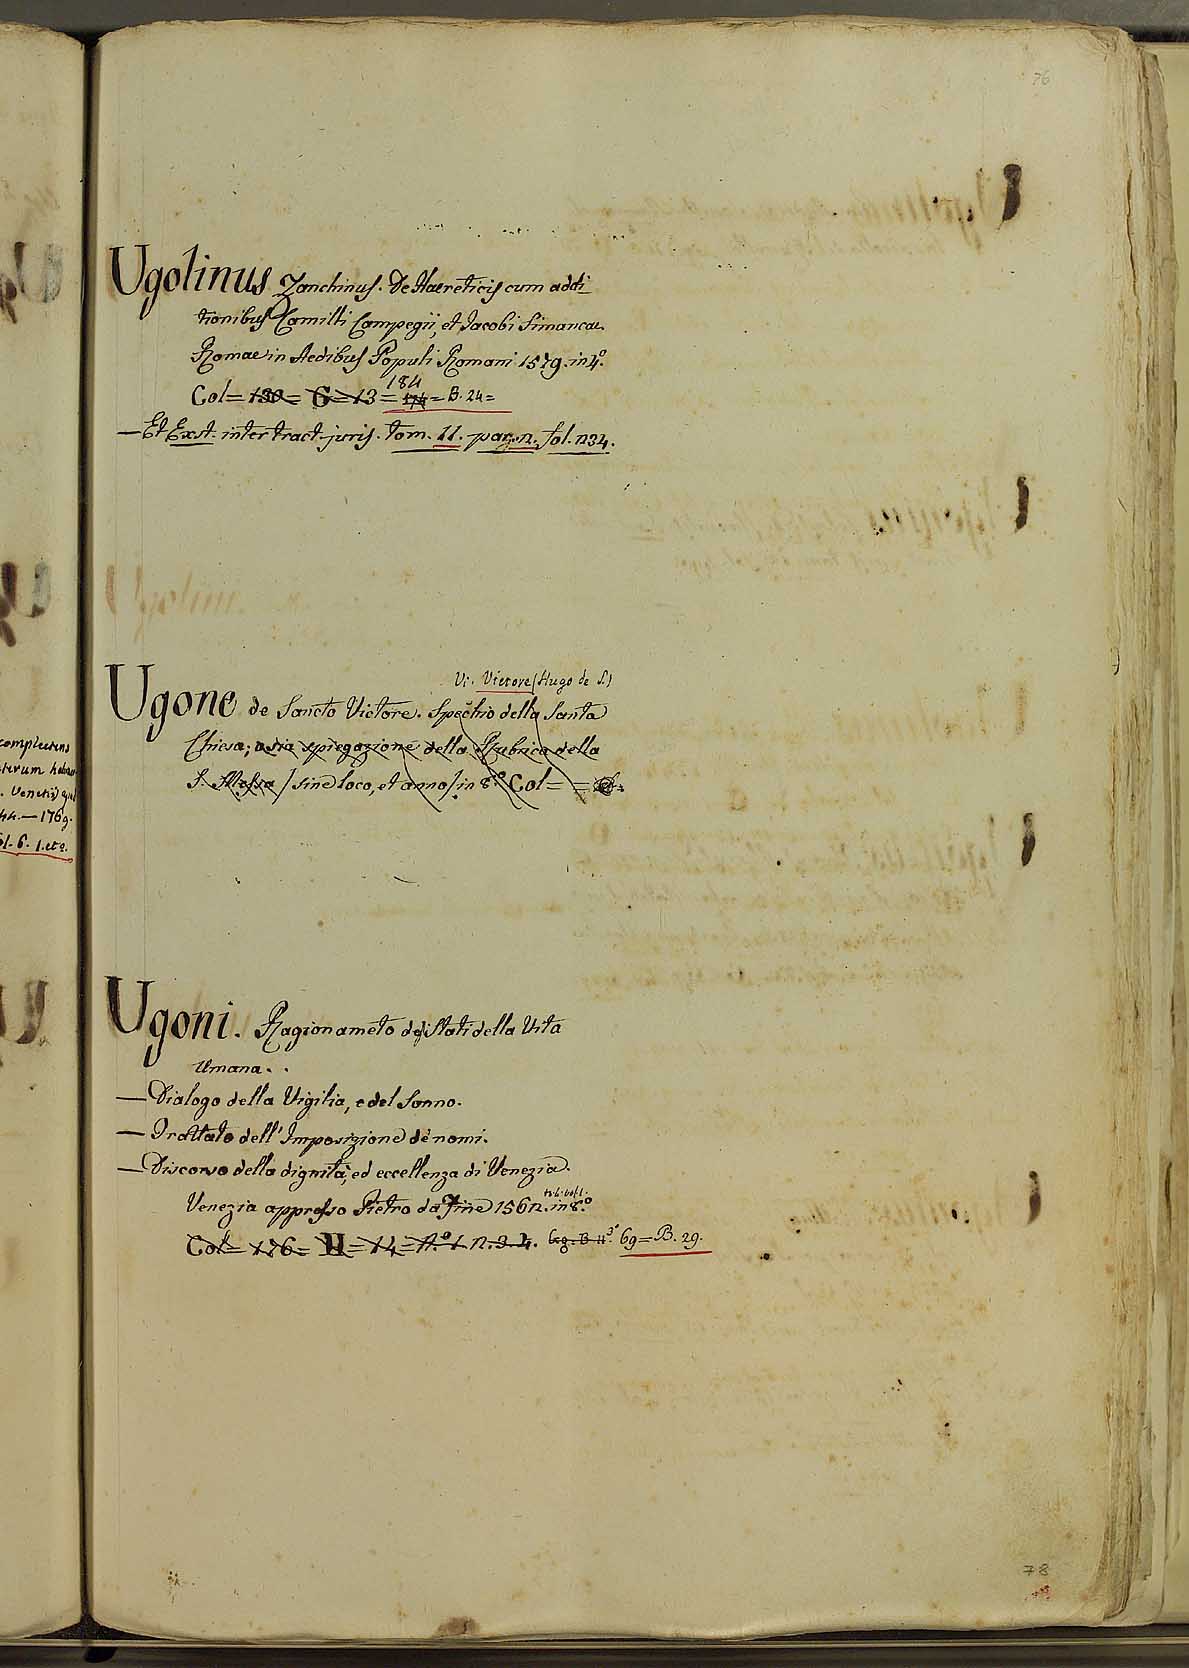 76
Ugolinus Zanchinus. De Haereticis cum addi_
tionibus Camilli Campegii, et Jacobi Simancae.
Romae in Aedibus Populi Romani 1579. in 4.º
184
Col= 130= G=13= 174= B. 24=
— Et Exst. inter tract. juris. tom. 11. par. 2. fol. 234.
Vi. Victore (Hugo de S.)
Ugone de Sancto Victore. Specchio della Santa
Chiesa; o sia spiegazione della Rubrica della
S. Messa / sine loco, et anno / in 8.º Col= =
complectens
Venetiis
44.—1769.
ol. 6. 1. et 2.
Ugoni. Ragionameto degi Stati della Vita
Umana..
— Dialogo della Vigilia, e del Sonno.
— Trattato dell' Imposizione de' nomi.
— Discorso della dignità, ed eccellenza di Venezia.
Venezia appresso Pietro da Fine 1562. in 8.º
Col= 176= H=14= n.º 1. 2. 3. 4. 69= B. 29.
78